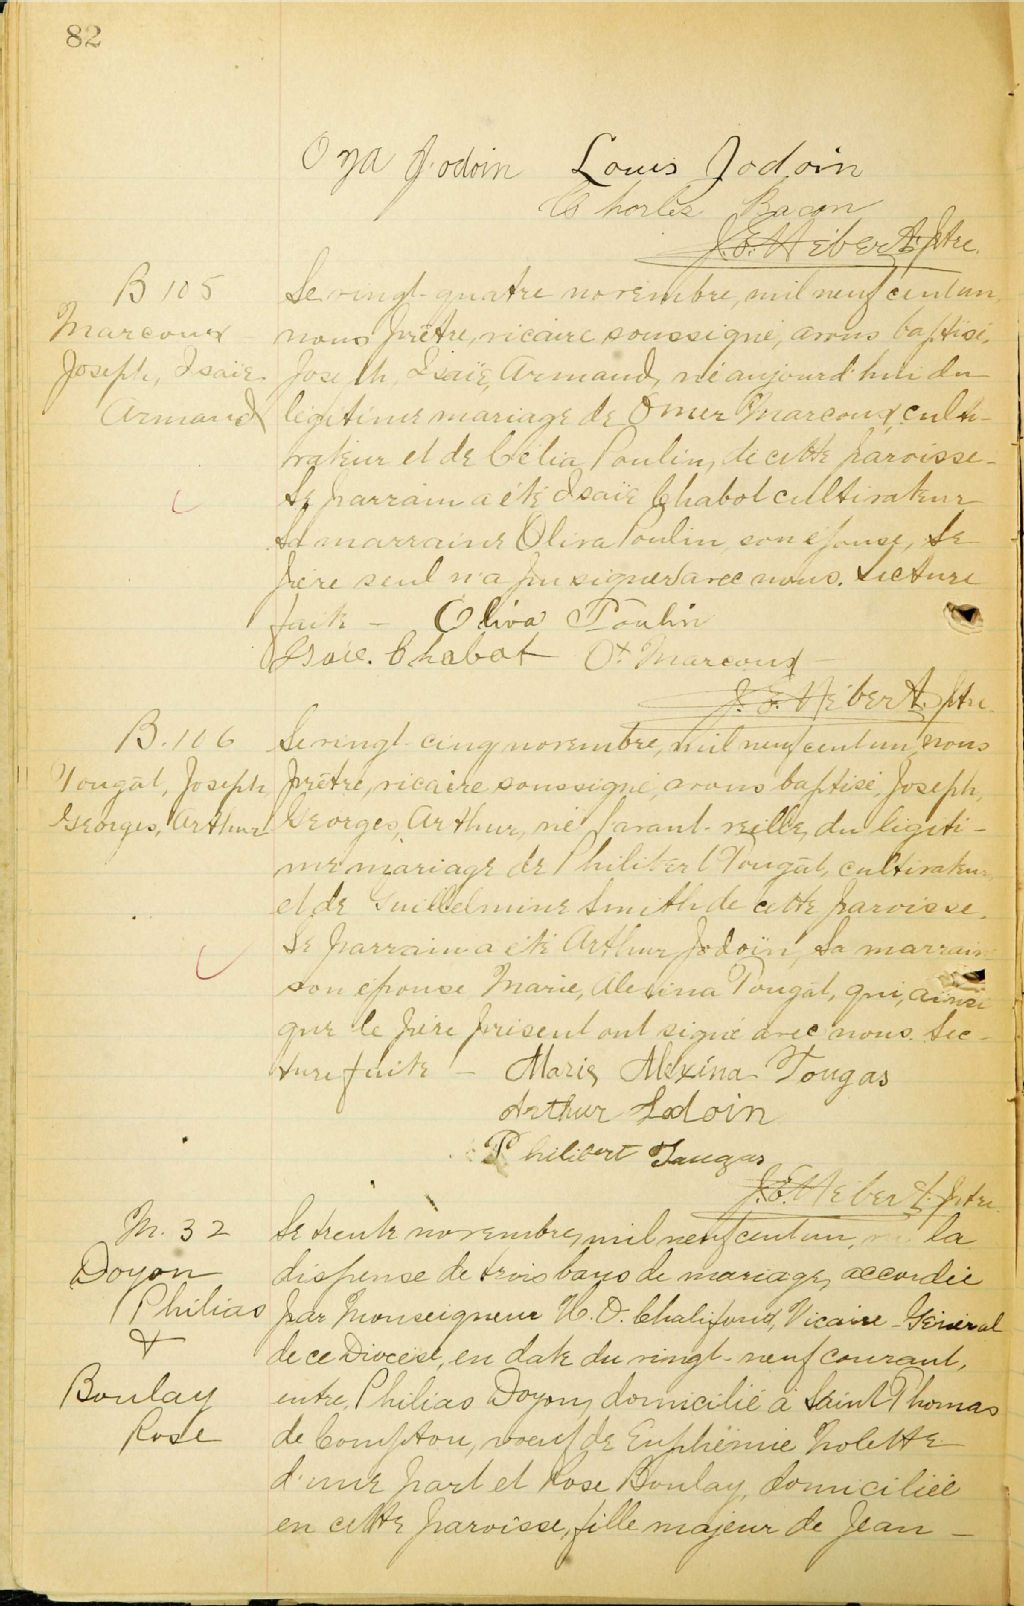 82
Oza Jodoin Louis Jodoin
Charles Bacon
J. E. Hébert, ptre.
B 105
Marcoux
Joseph, Isaïe
Armand
Le vingt-quatre novembre, mil neuf cent un,
nous prêtre, vicaire soussigné, avons baptisé,
Joseph, Isaïe, Armand, né aujourd'hui du
légitime mariage de Omer Marcoux, culti-
vateur et de Célia Poulin, de cette paroisse.
Le parrain a été Isaïe Chabot cultivateur
La marraine Oliva Poulin son épouse, Le
père seul n'a pu signer avec nous. Lecture
faite - Oliva Poulin
Isaïe. Chabot Ot Marcoux
J. E. Hébert, ptre.
B. 106
Tougât, Joseph
Georges, Arthur
Le vingt-cinq novembre, mil neuf cent un, nous
prêtre, vicaire soussigné, avons baptisé, Joseph,
Georges, Arthur, né l'avant-veille, du légiti-
me mariage de Philibert Tougât, cultivateur,
et de Guillelmine Smith de cette paroisse.
Le parrain a été Arthur Jodoin, La marraine
son épouse Marie, Alexina Tougât, qui, ainsi
que le père présent ont signé avec nous. Lec-
ture faite - Marie Alexina Tougas
Arthur Jodoin
Philibert Tougas
J. E. Hébert, ptre.
M. 32
Doyon
Philias
&
Boulay
Rose
Le trente novembre, mil neuf cent un, vu la
dispense de trois bans de mariage, accordée
par Monseigneur H. O. Chalifoux, Vicaire-Général
de ce Diocèse, en date du vingt-neuf courant,
entre, Philias Doyon, domicilié à Saint Thomas
de Compton, voeuf de Euphémie Nolette
d'une part et Rose Boulay, domiciliée
en cette paroisse, fille majeur de Jean -